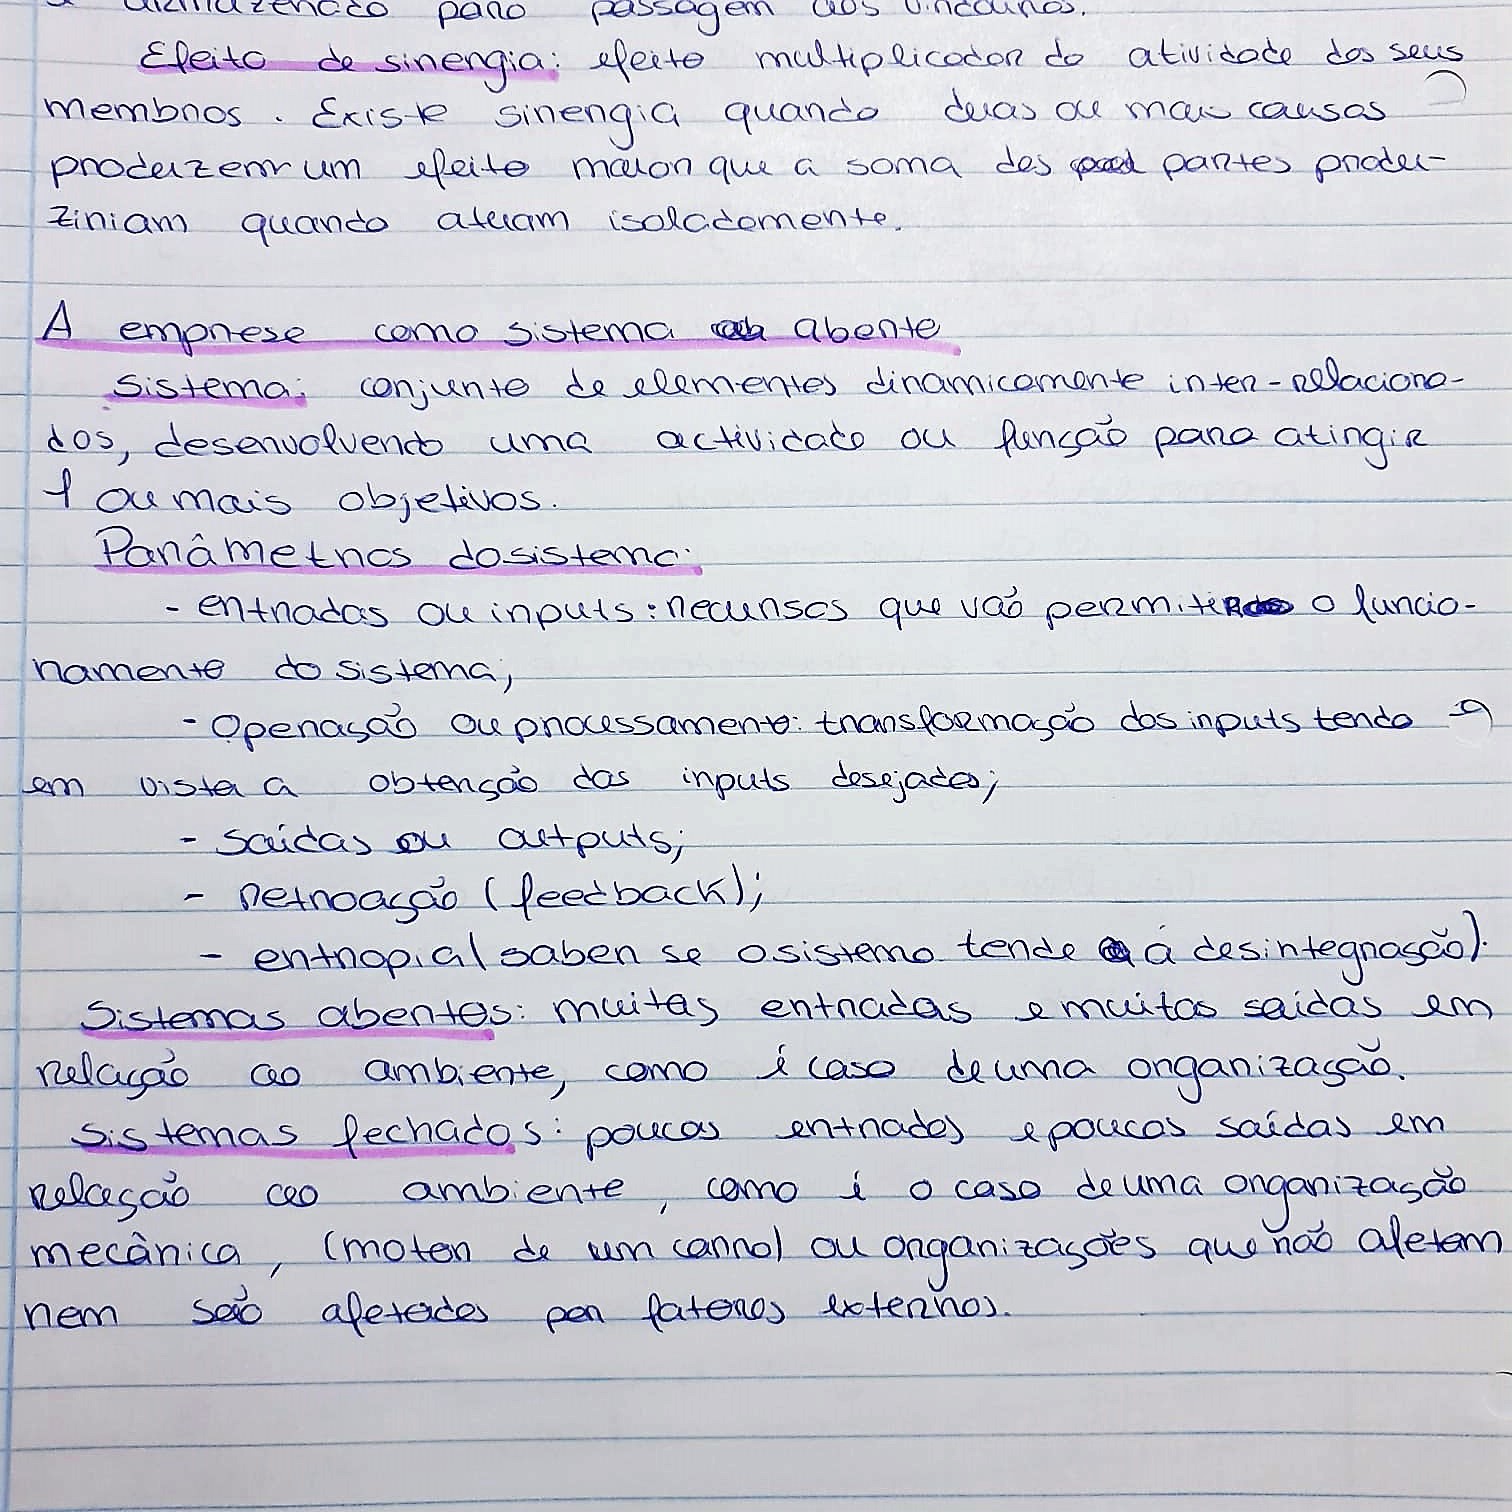 armazenado para passagem aos vindouros.
Efeito de sinergia: efeito multiplicador da atividade dos seus
membros. Existe sinergia quando duas ou mais causas
produzem um efeito maior que a soma das partes produ-
ziriam quando atuam isoladamente.
A empresa como sistema aberto
Sistema: conjunto de elementos dinamicamente inter-relaciona-
dos, desenvolvendo uma actividade ou função para atingir
1 ou mais objetivos.
Parâmetros do sistema:
- entradas ou inputs: recursos que vão permitir o funcio-
namento do sistema;
- Operação ou processamento: transformação dos inputs tendo
em vista a obtenção dos inputs desejados;
- saídas ou outputs;
- Retroação (feedback);
- entropia (saber se o sistema tende á desintegração).
Sistemas abertos: muitas entradas e muitas saídas em
relação ao ambiente, como é caso de uma organização.
Sistemas fechados: poucas entradas e poucas saídas em
relação ao ambiente, como é o caso de uma organização
mecânica, (motor de um carro) ou organizações que não afetam
nem são afetados por fatores externos.